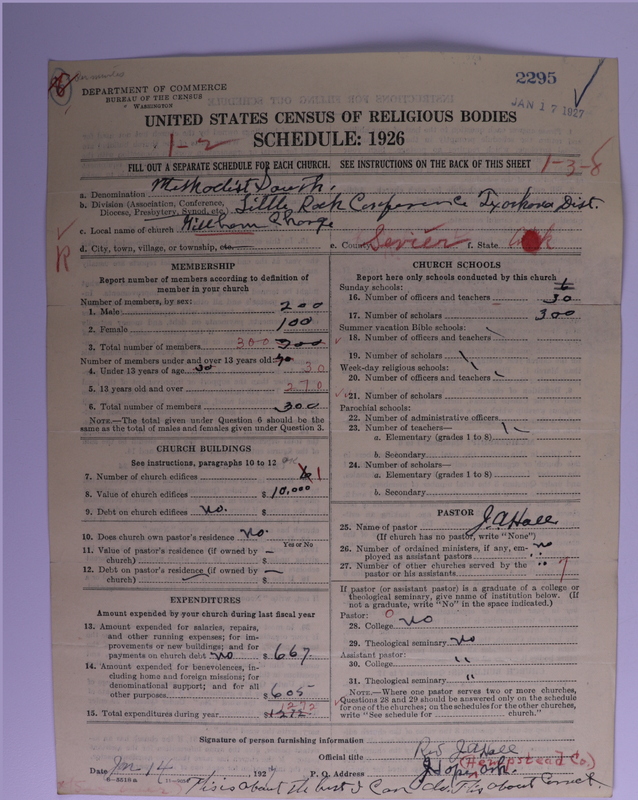 2295
JAN 17 1927
DEPARTMENT OF COMMERCE
BUREAU OF THE CENSUS
WASHINGTON
UNITED STATES CENSUS OF RELIGIOUS BODIES
SCHEDULE: 1926
1-2
FILL OUT A SEPARATE SCHEDULE FOR EACH CHURCH. SEE INSTRUCTIONS ON THE BACK OF THIS SHEET
1-3-8
a. Denomination Methodist South.
b. Division (Association, Conference, Diocese, Presbytery, Synod, etc.) Little Rock Conference Dist.
c. Local name of church
d. City, town, village, or township, etc. e. County Sevier f. State Ark
MEMBERSHIP
Report number of members according to definition of member in your church
Number of members, by sex:
1. Male 200
2. Female 100
3. Total number of members 300
Number of members under and over 13 years old:
4. Under 13 years of age 30 30
5. 13 years old and over 270
6. Total number of members 300
NOTE.—The total given under Question 6 should be the same as the total of males and females given under Question 3.
CHURCH BUILDINGS
See instructions, paragraphs 10 to 12
7. Number of church edifices 1
8. Value of church edifices $ 10,000
9. Debt on church edifices no. $
10. Does church own pastor's residence no.
Yes or No
11. Value of pastor's residence (if owned by church) $
12. Debt on pastor's residence (if owned by church) $
EXPENDITURES
Amount expended by your church during last fiscal year
13. Amount expended for salaries, repairs, and other running expenses; for improvements or new buildings; and for payments on church debt no $ 667.
14. Amount expended for benevolences, including home and foreign missions; for denominational support; and for all other purposes $ 605
15. Total expenditures during year $ 1272
CHURCH SCHOOLS
Report here only schools conducted by this church
Sunday schools:
16. Number of officers and teachers 30
17. Number of scholars 300
Summer vacation Bible schools:
18. Number of officers and teachers
19. Number of scholars
Week-day religious schools:
20. Number of officers and teachers
21. Number of scholars
Parochial schools:
22. Number of administrative officers
23. Number of teachers—
a. Elementary (grades 1 to 8)
b. Secondary
24. Number of scholars—
a. Elementary (grades 1 to 8)
b. Secondary
PASTOR
25. Name of pastor J. A Hall
(If church has no pastor, write "None")
26. Number of ordained ministers, if any, employed as assistant pastors no
27. Number of other churches served by the pastor or his assistants " 7
If pastor (or assistant pastor) is a graduate of a college or theological seminary, give name of institution below. (If not a graduate, write "No" in the space indicated.)
Pastor:
28. College no
29. Theological seminary no
Assistant pastor:
30. College "
31. Theological seminary "
NOTE.—Where one pastor serves two or more churches, Questions 28 and 29 should be answered only on the schedule for one of the churches; on the schedules for the other churches, write "See schedule for church."
Signature of person furnishing information
Official title Rev J. A Hall
(Hempstead Co.)
Date Jan 14, 1927 P. O. Address Hope Ark.
This is about the best I can do. It's about correct.